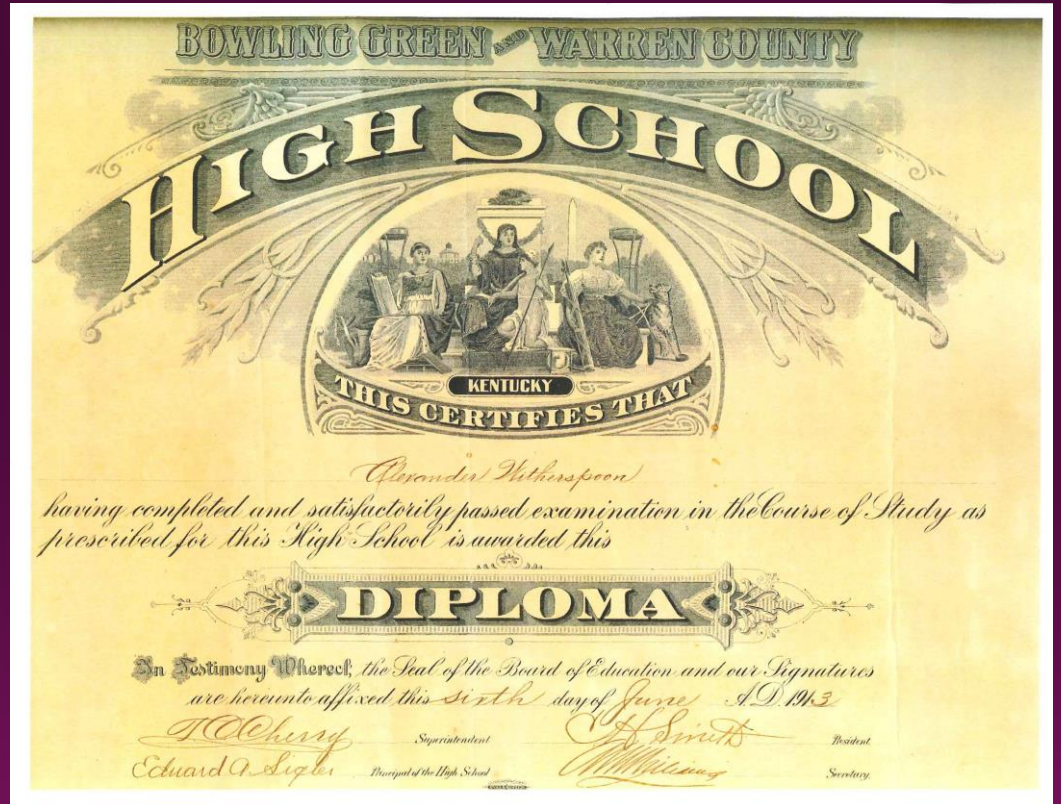 BOWLING GREEN AND WARREN COUNTY
HIGH SCHOOL
KENTUCKY
THIS CERTIFIES THAT
Alexander Witherspoon
having completed and satisfactorily passed examination in the Course of Study as
prescribed for this High School is awarded this
DIPLOMA
In Testimony Whereof, the Seal of the Board of Education and our Signatures
are hereunto affixed this sixth day of June A.D. 1913
T C Cherry Superintendent H Smith President
Edward A. Sigler Principal of the High School Secretary